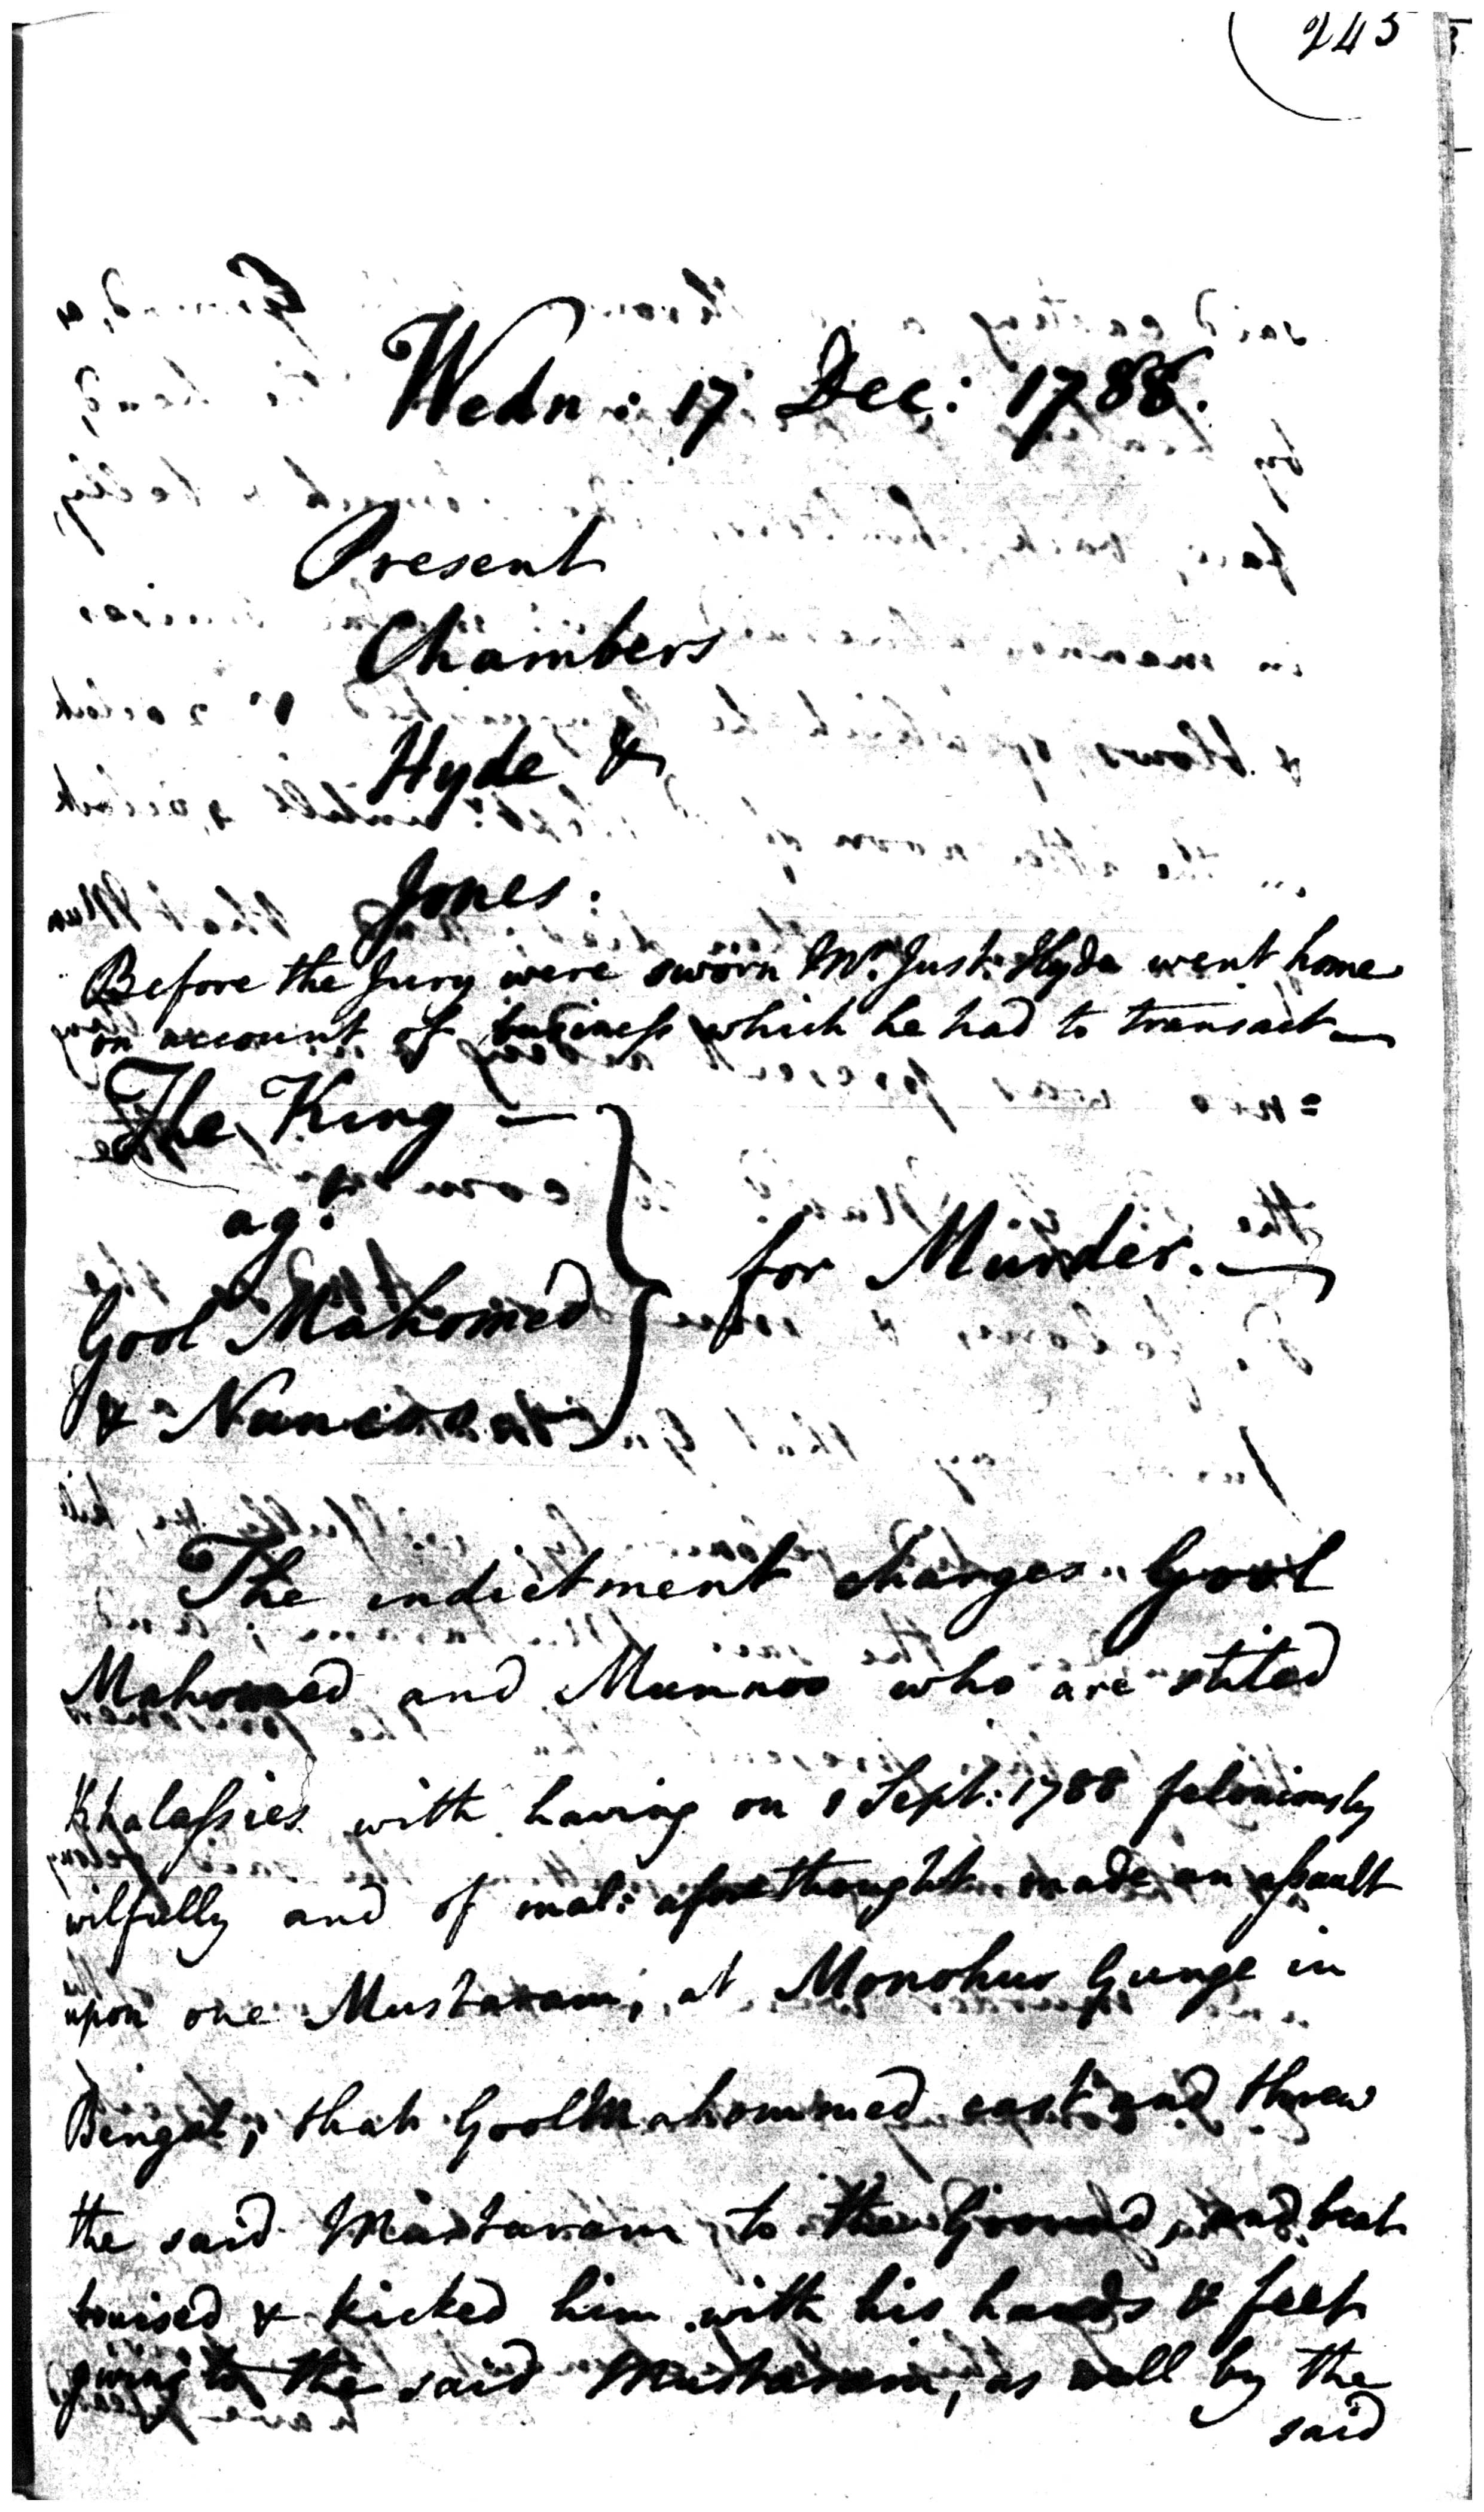 245
Wedn: 17 Dec: 1788.
Present
Chambers
Hyde &
Jones.
Before the Jury were sworn Mr. Just: Hyde went home
on account of business which he had to transact —
The King —
agt.
Gool Mahomed
&
for Murder. —
The indictment charges Gool
Mahomed and Munnoo who are stiled
Khalassies with having on 1 Sept: 1788 feloniously
wilfully and of mal: aforethought made an assault
upon one Mustaram, at Monohur Gunge in
Bengal; that Gool Mahommed cast and threw
the said Mustaram to the Ground, and beat
bruised & kicked him with his hands & feet
giving to the said Mustaram, as well by the
said